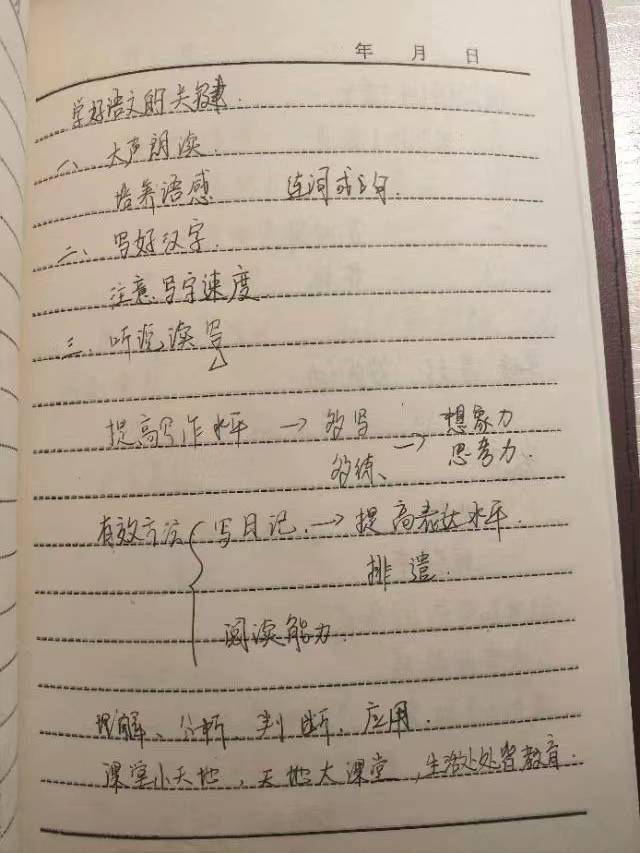 年 月 日
学好语文的关键.
一、大声朗读.
培养语感 连词成句.
二、写好汉字.
注意写字速度
三、听说读写
提高写作水平 → 多写 → 想象力
多练、 思考力.
有效方法 { 写日记. → 提高表达水平.
排遣.
阅读能力.
理解、分析、判断、应用.
课堂小天地,天地大课堂,生活处处皆教育.